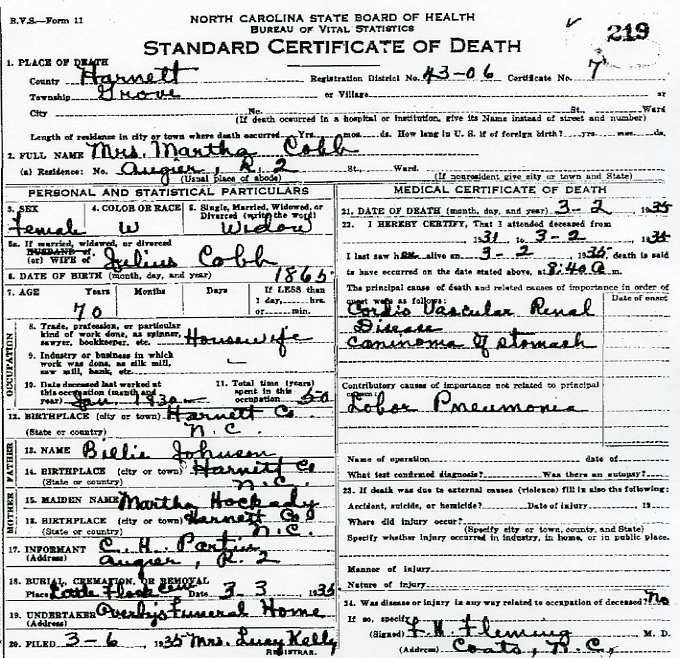 B.V.S.—Form 11
NORTH CAROLINA STATE BOARD OF HEALTH
BUREAU OF VITAL STATISTICS
219
STANDARD CERTIFICATE OF DEATH
1. PLACE OF DEATH
County Harnett Registration District No. 43-06 Certificate No. 7
Township Grove or Village or
City No. St., Ward
(If death occurred in a hospital or institution, give its Name instead of street and number)
Length of residence in city or town where death occurred Yrs. mos. ds. How long in U. S. if of foreign birth? yrs. mos. ds.
2. FULL NAME Mrs. Martha Cobb
(a) Residence: No. Angier, R. 2 St., Ward.
(Usual place of abode) (If nonresident give city or town and State)
PERSONAL AND STATISTICAL PARTICULARS
3. SEX 4. COLOR OR RACE 5. Single, Married, Widowed, or Divorced (write the word)
Female W Widow
5a. If married, widowed, or divorced
HUSBAND of
(or) WIFE of Julius Cobb
6. DATE OF BIRTH (month, day, and year) 1865
7. AGE Years Months Days If LESS than
1 day, hrs.
or min.
70
OCCUPATION
8. Trade, profession, or particular
kind of work done, as spinner,
sawyer, bookkeeper, etc. Housewife
9. Industry or business in which
work was done, as silk mill,
saw mill, bank, etc. –
10. Date deceased last worked at
this occupation (month and
year) Jan 1930
11. Total time (years)
spent in this
occupation 50
12. BIRTHPLACE (city or town) Harnett Co
(State or country) N. C.
FATHER
13. NAME Billie Johnson
14. BIRTHPLACE (city or town) Harnett Co
(State or country) N. C.
MOTHER
15. MAIDEN NAME Martha Hockady
16. BIRTHPLACE (city or town) Harnett Co
(State or country) N. C.
17. INFORMANT C. H. Partin
(Address) Angier, R. 2
18. BURIAL, CREMATION, OR REMOVAL
Place Little Flock Cem Date 3-3 1935
19. UNDERTAKER Overby's Funeral Home
20. FILED 3-6, 1935 Mrs. Lucy Kelly
REGISTRAR.
MEDICAL CERTIFICATE OF DEATH
21. DATE OF DEATH (month, day, and year) 3-2, 1935
22. I HEREBY CERTIFY, That I attended deceased from
1931 to 3-2, 1935
I last saw her alive on 3-2, 1935, death is said
to have occurred on the date stated above, at 8:40 a m.
The principal cause of death and related causes of importance in order of
onset were as follows: Date of onset
Cardio Vascular Renal
Disease
Carcinoma of stomach
Contributory causes of importance not related to principal
cause:
Lobar Pneumonia
Name of operation date of
What test confirmed diagnosis? Was there an autopsy?
23. If death was due to external causes (violence) fill in also the following:
Accident, suicide, or homicide? Date of injury 19
Where did injury occur?
(Specify city or town, county, and State)
Specify whether injury occurred in industry, in home, or in public place.
Manner of injury
Nature of injury
24. Was disease or injury in any way related to occupation of deceased? No
If so, specify
(Signed) F. H. Fleming M. D.
(Address) Coats, N.C.